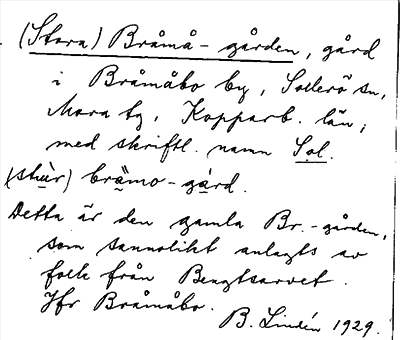 (Stora) Bråmå-gården, gård
i Bråmåbo by, Sollerö sn,
Mora tg, Kopparb. län;
med skriftl. namn Sol.
(stùr) brä̀mo-gárd.
Detta är den gamla Br.-gården,
som sannolikt anlagts av
folk från Bengtsarvet.
Jfr Bråmåbo.
B. Lindén 1929.